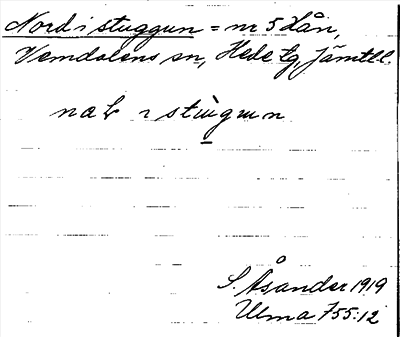 Nord i stuggun = nr 5 Lån,
Vemdalens sn, Hede tg, Jämtl.
i stùgun
S. Åsander 1919
Ulma 755:12